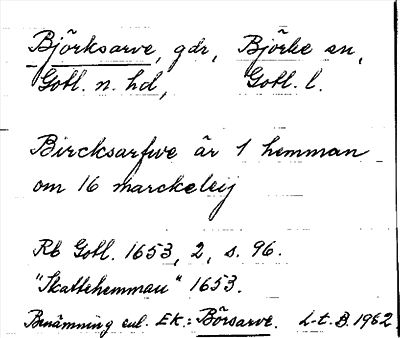 Björksarve, gdr, Björke sn,
Gotl. n. hd, Gotl. l.
Bircksarfwe är 1 hemman
om 16 marckeleij
Rb Gotl. 1653, 2, s. 96.
"Skattehemman" 1653.
Benämning enl. EK.: Börsarve. L-t. B. 1962